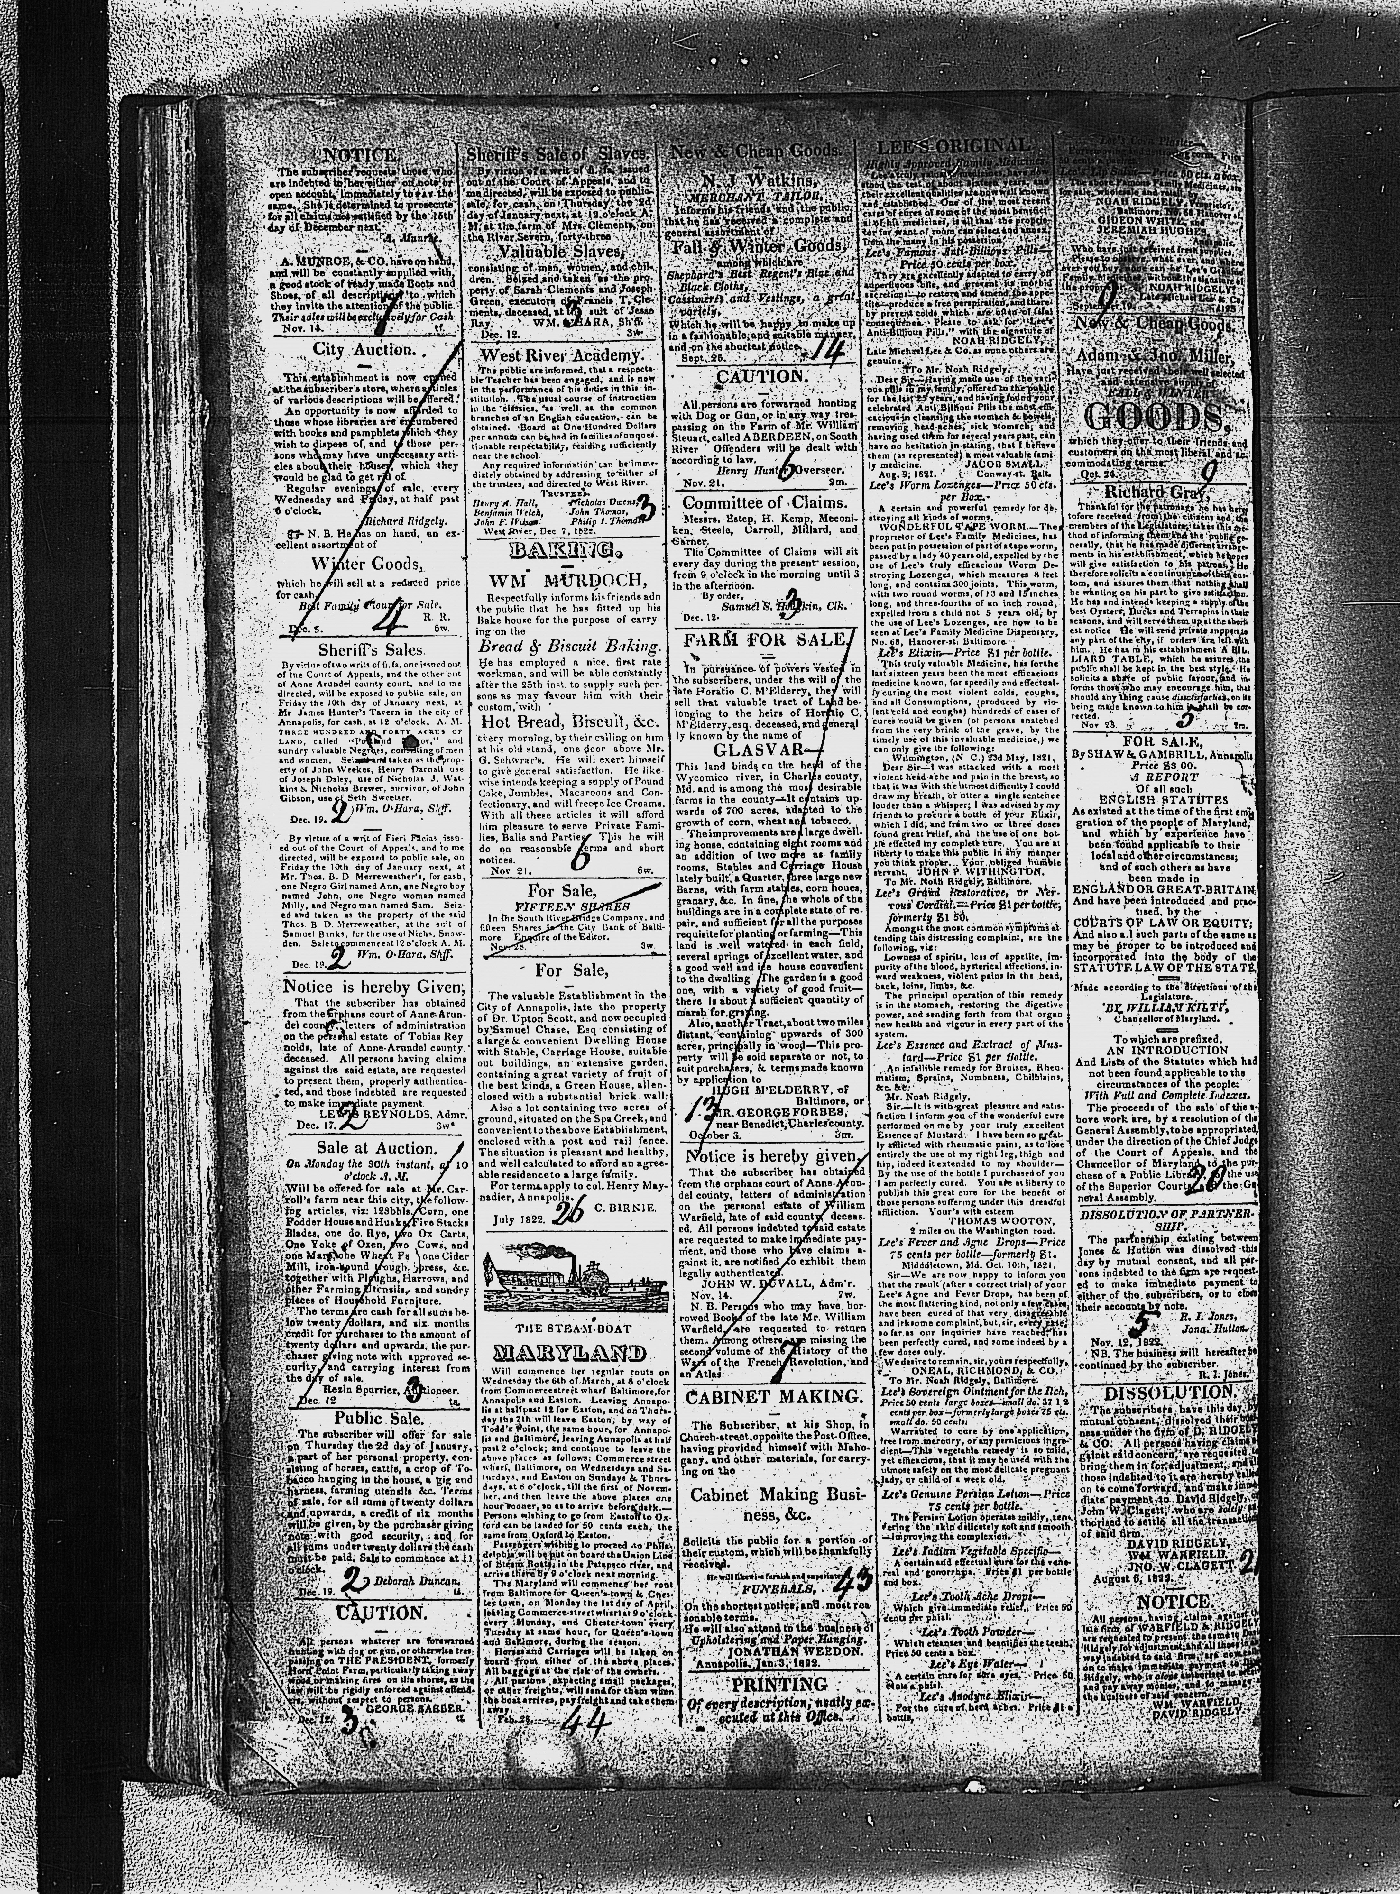 NOTICE.
The subscriber requests those who
are indebted to her either on note or
open account, immediately to pay the
same. She is determined to prosecute
for all claims not satisfied by the 15th
day of December next.
A. MUNROE, & CO. have on hand,
and will be constantly supplied with,
a good stock of ready made Boots and
Shoes, of all descriptions to which
they invite the attention of the public.
Their sales will be exclusively for Cash
Nov. 14. tf.
7
City Auction.
This establishment is now opened
at the subscriber's store, where articles
of various descriptions will be offered.
An opportunity is now afforded to
those whose libraries are encumbered
with books and pamphlets which they
wish to dispose of, and to those per-
sons who may have unnecessary arti-
cles about their houses, which they
would be glad to get rid of.
Regular evenings of sale, every
Wednesday and Friday, at half past
6 o'clock.
Richard Ridgely.
N. B. He has on hand, an ex-
cellent assortment of
Winter Goods,
which he will sell at a reduced price
for cash
Best Family Flour for Sale.
R. R.
Dec. 5. 6w.
4
Sheriff's Sales.
By virtue of two writs of fi.fa. one issued out
of the Court of Appeals, and the other out
of Anne Arundel county court, and to me
directed, will be exposed to public sale, on
Friday the 10th day of January next, at
Mr James Hunter's Tavern in the city of
Annapolis, for cash, at 12 o'clock, A. M.
THREE HUNDRED AND FORTY ACRES OF
LAND, called and
sundry valuable Negroes, consisting of men
and women. Seized and taken as the prop-
erty of John Weekes, Henry Darnall use
of Joseph Daley, use of Nicholas J. Wat
kins & Nicholas Brewer, survivor, of John
Gibson, use of Seth Sweetser.
Wm. O'Hara, Shff.
Dec. 19.
2
By virtue of a writ of Fieri Facias, issu-
ed out of the Court of Appeals, and to me
directed, will be exposed to public sale, on
Friday the 10th day of January next, at
Mr. Thos. B. D. Merreweather's, for cash,
one Negro Girl named Ann, one Negro boy
named John, one Negro woman named
Milly, and Negro man named Sam. Seiz-
ed and taken as the property of the said
Thos. B. D. Merreweather, at the suit of
Samuel Banks, for the use of Nichs. Snow-
den. Sale to commence at 12 o'clock A. M.
Wm. O'Hara, Shff.
Dec. 19.
2
Notice is hereby Given,
That the subscriber has obtained
from the orphans court of Anne-Arun-
del county, letters of administration
on the personal estate of Tobias Rey
nolds, late of Anne-Arundel county
deceased. All persons having claims
against the said estate, are requested
to present them, properly authentica-
ted, and those indebted are requested
to make immediate payment.
LEWIS REYNOLDS, Admr.
Dec. 17. 3w*
2
Sale at Auction.
On Monday the 30th instant, at 10
o'clock A. M.
Will be offered for sale at Mr. Car-
roll's farm near this city, the follow-
ing articles, viz: 128bbls. Corn, one
Fodder House and Husks, Five Stacks
Blades, one do. Rye, two Ox Carts,
One Yoke of Oxen, two Cows, and
one Machine Wheat Fan, one Cider
Mill, iron-bound trough, press, &c.
together with Ploughs, Harrows, and
other Farming Utensils, and sundry
pieces of Household Furniture.
The terms are cash for all sums be-
low twenty dollars, and six months
credit for purchases to the amount of
twenty dollars and upwards, the pur-
chaser giving note with approved se-
curity, and carrying interest from
the day of sale.
Rezin Spurrier, Auctioneer.
Dec. 12 ts.
3
Public Sale.
The subscriber will offer for sale
on Thursday the 2d day of January,
a part of her personal property, con-
sisting of horses, cattle, a crop of To-
bacco hanging in the house, a gig and
harness, farming utensils &c. Terms
of sale, for all sums of twenty dollars
and upwards, a credit of six months
will be given, by the purchaser giving
note with good security, and for
all sums under twenty dollars the cash
must be paid. Sale to commence at 11
o'clock.
Deborah Duncan.
Dec. 19. ts.
2
CAUTION.
All persons whatever are forewarned
hunting with dog or gun, or otherwise tres-
passing on THE PRESIDENT, formerly
Hord Point Farm, particularly taking away
wood or making fires on the shores, as the
law will be rigidly enforced against offend-
ers, without respect to persons.
GEORGE BARBER.
Dec. 12. tf.
3
Sheriff's Sale of Slaves.
By virtue of a writ of fi. fa. issued
out of the Court of Appeals, and to
me directed, will be exposed to public
sale, for cash, on Thursday, the 2d
day of January next, at 12 o'clock A.
M. at the farm of Mrs. Clements, on
the River Severn, forty-three
Valuable Slaves,
consisting of men, women, and chil-
dren. Seized and taken as the pro-
perty of Sarah Clements and Joseph
Green, executors of Francis T. Cle-
ments, deceased, at the suit of Jesse
Ray. WM. O'HARA, Shff.
Dec. 12. 3w
3
West River Academy.
The public are informed, that a respecta-
ble Teacher has been engaged, and is now
in the performance of his duties in this in-
stitution. The usual course of instruction
in the classics, as well as the common
branches of an English education, can be
obtained. Board at One Hundred Dollars
per annum can be had in families of unques-
tionable respectability, residing sufficiently
near the school.
Any required information can be imme-
diately obtained by addressing to either of
the trustees, and directed to West River.
TRUSTEES.
Henry A. Hall, Nicholas Owens,
Benjamin Welch, John Thomas,
John F. Wilson Philip I. Thomas
West River, Dec 7, 1822.
3
BAKING.
WM MURDOCH,
Respectfully informs his friends adn
the public that he has fitted up his
Bake house for the purpose of carry
ing on the
Bread & Biscuit Baking.
He has employed a nice, first rate
workman, and will be constantly
after the 25th inst. to supply such per-
sons as may favour him with their
custom, with
Hot Bread, Biscuit, &c.
every morning, by their calling on him
at his old stand, one door above Mr.
G. Schwrar's. He will exert himself
to give general satisfaction. He like-
wise intends keeping a supply of Pound
Cake, Jumbles, Macaroons and Con-
fectionary, and will freeze Ice Creams.
With all these articles it will afford
him pleasure to serve Private Fami-
lies, Balls and Parties. This he will
do on reasonable terms and short
notices.
Nov 21. 6w.
6
For Sale,
FIFTEEN SHARES
In the South River Bridge Company, and
fifteen Shares in the City Bank of Balti-
more Enquire of the Editor.
Nov. 28. 3w.
For Sale,
The valuable Establishment in the
City of Annapolis, late the property
of Dr. Upton Scott, and now occupied
by Samuel Chase, Esq consisting of
a large & convenient Dwelling House
with Stable, Carriage House, suitable
out buildings, an extensive garden,
containing a great variety of fruit of
the best kinds, a Green House, all en-
closed with a substantial brick wall.
Also a lot containing two acres of
ground, situated on the Spa Creek, and
convenient to the above Establishment,
enclosed with a post and rail fence.
The situation is pleasant and healthy,
and well calculated to afford an agree-
able residence to a large family.
For terms apply to col. Henry May-
nadier, Annapolis.
C. BIRNIE.
July 1822.
26
THE STEAM-BOAT
MARYLAND
Will commence her regular routs on
Wednesday the 6th of March, at 8 o'clock
from Commerce street wharf Baltimore, for
Annapolis and Easton. Leaving Annapo-
lis at half past 12 for Easton, and on Thurs-
day the 7th will leave Easton, by way of
Todd's Point, the same hour, for Annapo-
lis and Baltimore, leaving Annapolis at half
past 2 o'clock; and continue to leave the
above places as follows; Commerce street
wharf, Baltimore, on Wednesdays and Sa-
turdays, and Easton on Sundays & Thurs-
days, at 8 o'clock, till the first of Novem-
ber, and then leave the above places one
hour sooner, so as to arrive before dark.—
Persons wishing to go from Easton to Ox-
ford can be landed for 50 cents each, the
same from Oxford to Easton.
Passengers wishing to proceed to Phila-
delphia will be put on board the Union Line
of Steam Boats, in the Patapsco river, and
arrive there by 9 o'clock next morning.
The Maryland will commence her rout
from Baltimore for Queen's-town & Ches-
ter town, on Monday the 1st of April,
leaving Commerce-street wharf at 9 o'clock
every Monday, and Chester-town every
Tuesday at same hour, for Queen's-town
and Baltimore, during the season.
Horses and Carriages will be taken on
board from either of the above places.
All baggage at the risk of the owners.
All persons expecting small packages,
or other freights, will send for them when
the boat arrives, pay freight and take them
away.
Feb. 28.
44
New & Cheap Goods.
N. J. Watkins,
MERCHANT TAILOR,
Informs his friends and the public,
that he has received a complete and
general assortment of
Fall & Winter Goods,
among which are
Shephard's Best Regent's Blue and
Black Cloths,
Cassimers and Vestings, a great
variety,
Which he will be happy to make up
in a fashionable and suitable manner,
and on the shortest notice.
Sept. 26.
14
CAUTION.
All persons are forwarned hunting
with Dog or Gun, or in any way tres-
passing on the Farm of Mr. William
Steuart, called ABERDEEN, on South
River Offenders will be dealt with
according to law.
Henry Hunter, Overseer.
Nov. 21. 2m.
6
Committee of Claims.
Messrs. Estep, H. Kemp, Meconi-
ken, Steele, Carroll, Millard, and
Garner.
The Committee of Claims will sit
every day during the present session,
from 9 o'clock in the morning until 3
in the afternoon.
By order,
Samuel S. Hodgkin, Clk.
Dec. 12.
3
FARM FOR SALE
In pursuance of powers vested in
the subscribers, under the will of the
late Horatio C. M'Elderry, they will
sell that valuable tract of Land be-
longing to the heirs of Horatio C.
M'Elderry, esq. deceased, and general
ly known by the name of
GLASVAR—
This land binds on the head of the
Wycomico river, in Charles county,
Md. and is among the most desirable
farms in the county—It contains up-
wards of 700 acres, adapted to the
growth of corn, wheat and tobacco.
The improvements are a large dwell-
ing house, containing eight rooms and
an addition of two more as family
rooms, Stables and Carriage House
lately built, a Quarter, three large new
Barns, with farm stables, corn houes,
granary, &c. In fine, the whole of the
buildings are in a complete state of re-
pair, and sufficient for all the purposes
requisite for planting or farming—This
land is well watered in each field,
several springs of excellent water, and
a good well and ice house convenient
to the dwelling The garden is a good
one, with a variety of good fruit—
there is about a sufficient quantity of
marsh for grazing.
Also, another Tract, about two miles
distant, containing upwards of 300
acres, principally in wood—This pro-
perty will be sold separate or not, to
suit purchasers, & terms made known
by application to
HUGH M'ELDERRY, of
Baltimore, or
MR. GEORGE FORBES,
near Benedict, Charles county.
October 3. 3m.
13
Notice is hereby given,
That the subscriber has obtained
from the orphans court of Anne-Arun-
del county, letters of administration
on the personal estate of William
Warfield, late of said county, deceas-
ed. All persons indebted to said estate
are requested to make immediate pay-
ment, and those who have claims a-
gainst it, are notified to exhibit them
legally authenticated.
JOHN W. DUVALL, Adm'r.
Nov. 14. 7w.
N. B. Persons who may have bor-
rowed Books of the late Mr. William
Warfield, are requested to return
them. Among others are missing the
second volume of the History of the
Wars of the French Revolution, and
an Atlas
7
CABINET MAKING.
The Subscriber, at his Shop, in
Church-street, opposite the Post-Office,
having provided himself with Maho-
gany, and other materials, for carry-
ing on the
Cabinet Making Busi-
ness, &c.
Solicits the public for a portion of
their custom, which will be thankfully
received.
He will likewise furnish and superintend
FUNERALS,
On the shortest notice, and most rea
sonable terms.
He will also attend to the business of
Upholstering and Paper Hanging.
JONATHAN WEEDON.
Annapolis, Jan. 3. 1822.
43
PRINTING
Of every description, neatly ex-
ecuted at this Office.
LEE'S ORIGINAL
Highly Approved Family Medicines.
Lee's Famous Anti-Billious Pills—
Price 50 cents per box.
They are excellently adapted to carry off
superfluous bile, and prevent its morbid
secretions—to restore and amend the appe-
tite—produce a free perspiration, and there-
by prevent colds which are often of fatal
consequence. Please to ask for "Lee's
Anti-Billious Pills," with the signature of
NOAH RIDGELY,
Late Michael Lee & Co. as none others are
genuine.
To Mr. Noah Ridgely.
Dear Sir—Having made use of the vari-
ous pills in my family, offered to the public
for the last 25 years, and having found your
celebrated Anti-Billious Pills the most effi-
cacious in cleansing the stomach & bowels,
removing head-aches, sick stomach; and
having used them for several years past, can
have no hesitation in stating, that I believe
them (as represented) a most valuable fami
ly medicine. JACOB SMALL.
Aug. 3, 1821. Conway-st. Balt.
Lee's Worm Lozenges—Price 50 cts.
per Box.
A certain and powerful remedy for de-
stroying all kinds of worms.
WONDERFUL TAPE WORM.—The
proprietor of Lee's Family Medicines, has
been put in possession of part of a tape worm,
passed by a lady 40 years old, expelled by the
use of Lee's truly efficacious Worm De-
stroying Lozenges, which measures 8 feet
long, and contains 300 joints. This worm,
with two round worms, of 13 and 15 inches
long, and three-fourths of an inch round,
expelled from a child not 5 years old, by
the use of Lee's Lozenges, are now to be
seen at Lee's Family Medicine Dispensary,
No. 68, Hanover-st. Baltimore.
Lee's Elixir—Price $1 per bottle.
This truly valuable Medicine, has for the
last sixteen years been the most efficacious
medicine known, for speedily and effectual-
ly curing the most violent colds, coughs,
and all Consumptions, (produced by vio-
lent cold and coughs) hundreds of cases of
cures could be given (of persons snatched
from the very brink of the grave, by the
timely use of this invaluable medicine,) we
can only give the following:
Wilmington, (N C.) 23d May, 1821.
Dear Sir—I was attacked with a most
violent head-ache and pain in the breast, so
that it was with the utmost difficulty I could
draw my breath, or utter a single sentence
louder than a whisper; I was advised by my
friends to procure a bottle of your Elixir,
which I did, and from two or three doses
found great relief, and the use of one bot-
tle effected my complete cure. You are at
liberty to make this public in any manner
you think proper. Your obliged humble
servant, JOHN P. WITHINGTON.
To Mr. Noah Ridgely, Baltimore.
Lee's Grand Restorative, or Ner-
vous Cordial.—Price $1 per bottle,
formerly $1 50.
Amongst the most common symptoms at-
tending this distressing complaint, are the
following, viz:
Lowness of spirits, loss of appetite, im-
purity of the blood, hysterical affections, in-
ward weakness, violent pains in the head,
back, loins, limbs, &c.
The principal operation of this remedy
is in the stomach, restoring the digestive
power, and sending forth from that organ
new health and vigour in every part of the
system.
Lee's Essence and Extract of Mus-
tard—Price $1 per Bottle.
An infallible remedy for Bruises, Rheu-
matism, Sprains, Numbness, Chilblains,
&c. &c.
Mr. Noah Ridgely,
Sir—It is with great pleasure and satis-
faction I inform you of the wonderful cure
performed on me by your truly excellent
Essence of Mustard. I have been so great-
ly afflicted with rheumatic pains, as to lose
entirely the use of my right leg, thigh and
hip, indeed it extended to my shoulder—
By the use of the bottle I purchased of you
I am perfectly cured. You are at liberty to
publish this great cure for the benefit of
those persons suffering under this dreadful
affliction. Your's with esteem
THOMAS WOOTON,
2 miles on the Washington road.
Lee's Fever and Ague Drops—Price
75 cents per bottle—formerly $1.
Middletown, Md. Oct. 10th, 1821.
Sir—We are now happy to inform you
that the result after a correct trial of your
Lee's Ague and Fever Drops, has been of
the most flattering kind, not only a few cases
have been cured of that very disagreeable
and irksome complaint, but, sir, every case,
so far as our inquiry have reached, has
been perfectly cured, and some indeed by a
few doses only.
We desire to remain, sir, yours respectfully,
ONEAL, RICHMOND, & CO.
To Mr. Noah Ridgely, Baltimore.
Lee's Sovereign Ointment for the Itch,
Price 50 cents large boxes—small do. 37 1 2
cents per box—formerly large boxes 75 cts.
small do. 50 cents
Warranted to cure by one application,
free from mercury, or any pernicious ingre-
dient—This vegetable remedy is so mild,
yet efficacious, that it may be used with the
utmost safety on the most delicate pregnant
lady, or child of a week old.
Lee's Genuine Persian Lotion—Price
75 cents per bottle.
The Persian Lotion operates mildly, ren-
dering the skin delicately soft and smooth
—improving the complexion.
Lee's Indian Vegetable Specific—
A certain and effectual cure for the vene-
real and gonorrhœa. Price $1 per bottle
and box.
Lee's Tooth Ache Drops—
Which give immediate relief. Price 50
cents per phial.
Lee's Tooth Powder—
Which cleanses and beautifies the teeth.
Price 50 cents a box.
Lee's Eye Water—
A certain cure for sore eyes. Price 50
cents a phial.
Lee's Anodyne Elixir—
For the cure of head aches. Price $1 a
bottle.
NOAH RIDGELY, Proprietor,
Baltimore, No. 68 Hanover st.
GIDEON WHITE, and
JEREMIAH HUGHES,
Annapolis.
Who have just received fresh supplies.
NOAH RIDGELY,
Late Michael Lee & Co.
9
New & Cheap Goods.
Adam & Jno. Miller,
Have just received their well selected
and extensive supply of
FALL & WINTER
GOODS,
which they offer to their friends and
customers on the most liberal and ac-
commodating terms.
Oct. 24.
9
Richard Gray,
Thankful for the patronage he has here
tofore received from the citizens and the
members of the Legislature, takes this me-
thod of informing them and the public ge-
nerally, that he has made different arrange-
ments in his establishment, which he hopes
will give satisfaction to his patrons. He
therefore solicits a continuance of their cus-
tom, and assures them that nothing shall
be wanting on his part to give satisfaction.
He has and intends keeping a supply of the
best Oysters, Ducks and Terrapins in their
seasons, and will serve them up at the short
est notice He will send private suppers to
any part of the city, if orders are left with
him. He has in his establishment A BIL
LIARD TABLE, which he assures the
public shall be kept in the best style. He
solicits a share of public favour, and in-
forms those who may encourage him, that
should any thing cause dissatisfaction, on its
being made known to him it shall be cor-
rected.
Nov. 28. 2m.
5
FOR SALE,
By SHAW & GAMBRILL, Annapolis
Price $3 00.
A REPORT
Of all such
ENGLISH STATUTES
As existed at the time of the first emi
gration of the people of Maryland,
and which by experience have
been found applicable to their
local and other circumstances;
and of such others as have
been made in
ENGLAND OR GREAT-BRITAIN,
And have been introduced and prac-
tised, by the
COURTS OF LAW OR EQUITY;
And also all such parts of the same as
may be proper to be introduced and
incorporated into the body of the
STATUTE LAW OF THE STATE.
Made according to the directions of the
Legislature.
BY WILLIAM KILTY,
Chancellor of Maryland.
To which are prefixed,
AN INTRODUCTION
And Lists of the Statutes which had
not been found applicable to the
circumstances of the people:
With Full and Complete Indexes.
The proceeds of the sale of the a-
bove work are, by a resolution of the
General Assembly, to be appropriated,
under the direction of the Chief Judge
of the Court of Appeals, and the
Chancellor of Maryland, to the pur-
chase of a Public Library for the use
of the Superior Courts, and the Ge-
neral Assembly.
20
DISSOLUTION OF PARTNER-
SHIP.
The partnership existing between
Jones & Hutton was dissolved this
day by mutual consent, and all per-
sons indebted to the firm are request-
ed to make immediate payment to
either of the subscribers, or to close
their accounts by note.
R. I. Jones,
Jona. Hutton.
Nov. 12, 1822.
5
NB. The business will hereafter be
continued by the subscriber.
R. I. Jones.
DISSOLUTION.
The subscribers, have this day, by
mutual consent, dissolved their busi-
ness under the firm of D. RIDGELY
& CO. All persons having claims
against said concern, are requested to
bring them in for adjustment, and all
those indebted to it are hereby called
on to come forward, and make imme-
diate payment to David Ridgely, or
John W. Clagett, who are solely au-
thorised to settle all the transactions
of said firm.
DAVID RIDGELY,
WM. WARFIELD,
JNO. W. CLAGETT.
August 6, 1822.
NOTICE.
All persons having claims against the
late firm of WARFIELD & RIDGELY
are requested to present the same to D.
Ridgely for adjustment, and all those in any
way indebted to said firm, are now called
on to make immediate payment to David
Ridgely, who is alone authorised to receive
and pay away monies, and to manage all
the business of said concern.
WM. WARFIELD,
DAVID RIDGELY.